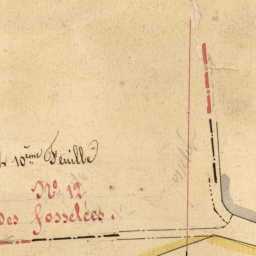 10ème Feuille
No. 12
des Fosselées.